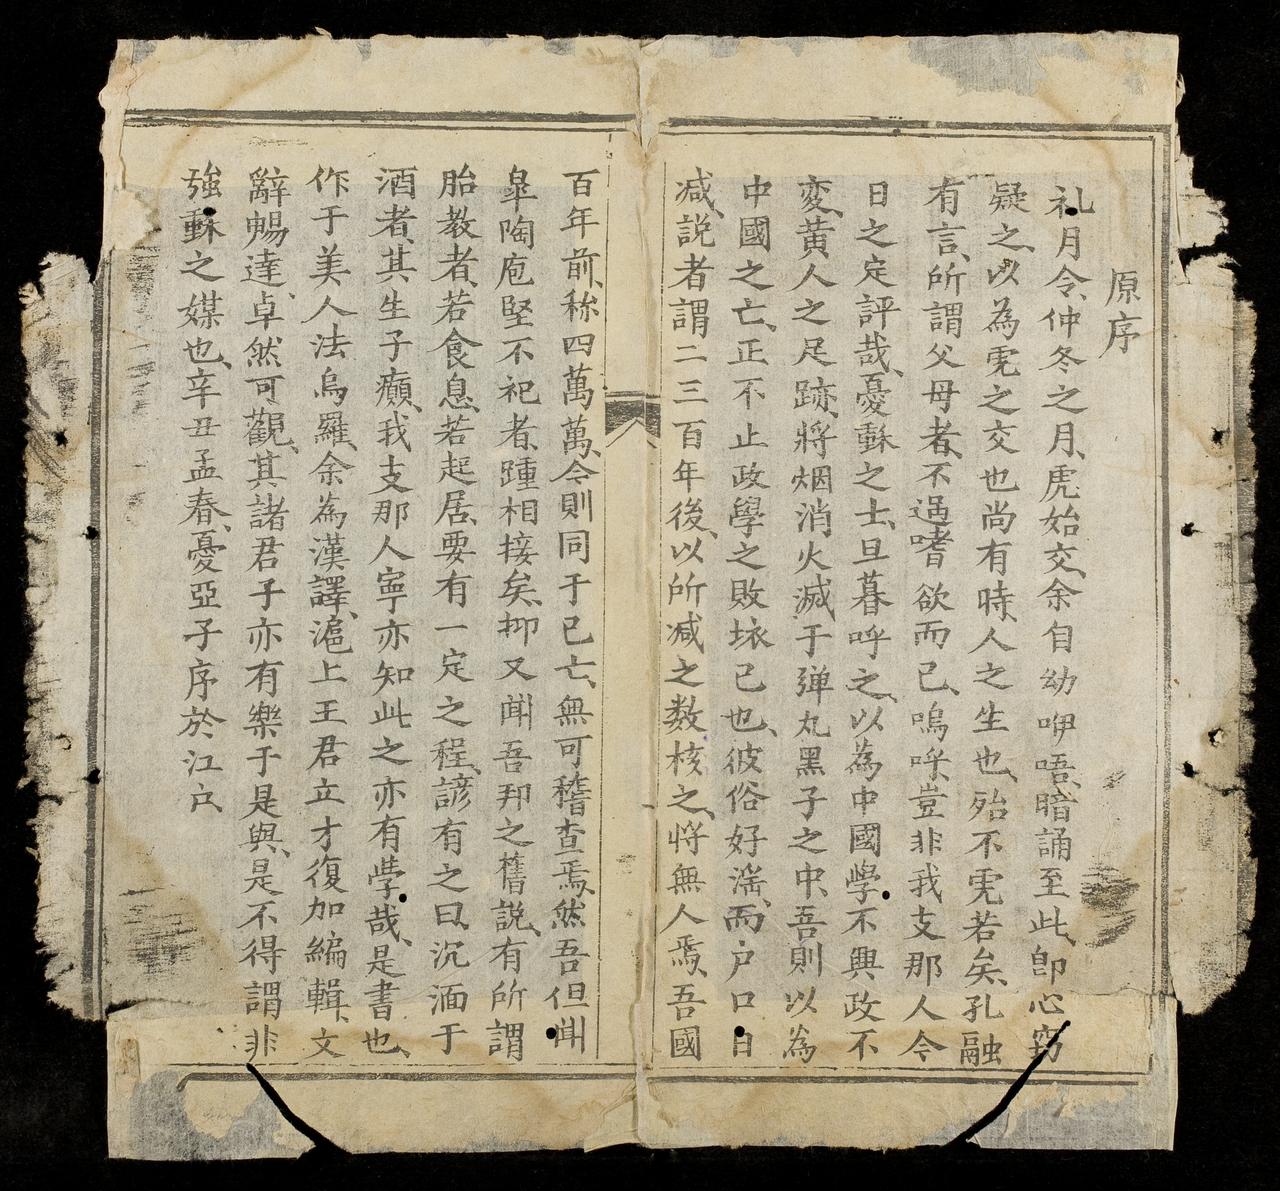 原序
礼月令、仲冬之月、虎始交、余自幼咿唔、暗誦至此、卽心窃
疑之、以為䨇之交也尚有時、人之生也、殆不䨇若矣、孔融
有言、所謂父母者、不過嗜欲而已、嗚呼、豈非我支那人今
日之定評哉、憂稣之士、旦暮呼之、以為中國學不興政不
変、黄人之足跡、将烟消火滅、于弹丸黑子之中、吾則以為
中國之亡、正不止政學之敗坏已也、彼俗好滛、而户口日
减、説者謂二三百年後、以所减之数核之、将無人焉、吾國
百年前、称四萬萬、今則同于已亡、無可稽查焉、然吾但聞
皐陶庖堅不祀者、踵相接矣、抑又聞吾邦之舊説、有所謂
胎教者、若食息、若起居、要有一定之程、諺有之曰、沉湎于
酒者、其生子癲、我支那人寧亦知此之亦有學哉、是書也、
作于美人法烏羅、余為漢譯、滬上王君立才復加編輯、文
辭暢達、卓然可觀、其諸君子亦有樂于是與、是不得謂非
強稣之媒也、辛丑孟春、憂亞子序於江户、